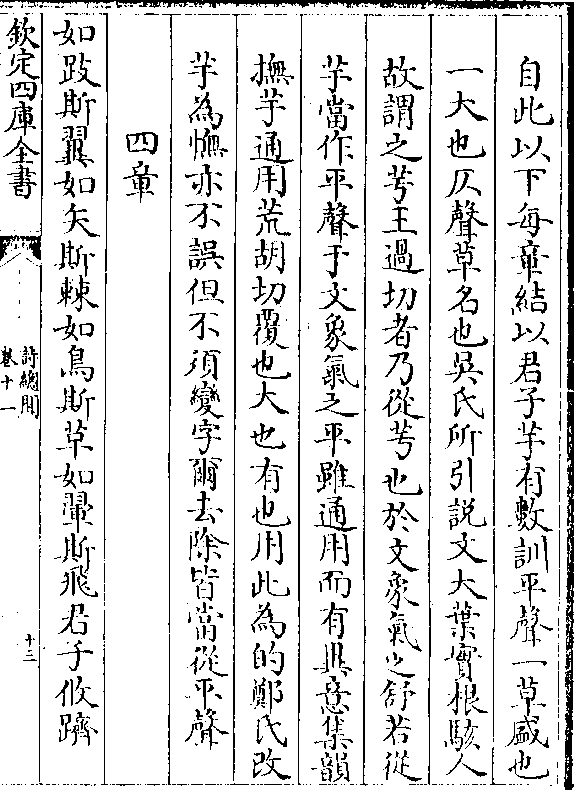 自此以下每章結以君子芋有數訓平聲一草盛也
一大也仄聲草名也吳氏所引説文大葉實根駭人
故謂之芌王過切者乃從芌也於文象氣之舒若從
芋當作平聲于文象氣之平雖通用而有異意集韻
撫芋通用荒胡切覆也大也有也用此為的鄭氏改
芋為憮亦不誤但不須變字爾去除皆當從平聲
四章
如跂斯翼如矢斯棘如鳥斯草如翬斯飛君子攸躋
欽定四庫全書
詩總聞
卷十一
十三